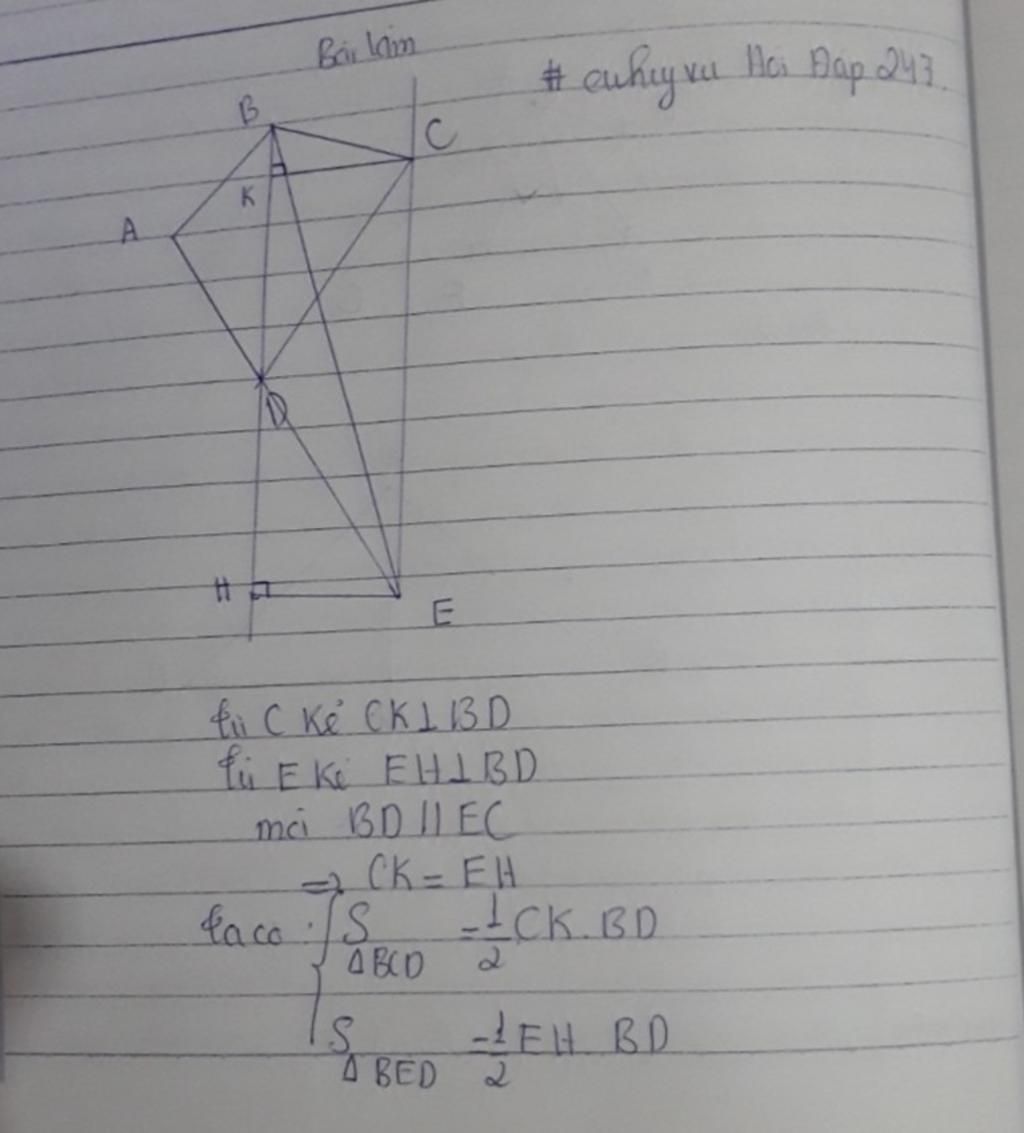 Bài làm
# euhuyvu Hỏi Đáp 247.
B
C
K
A
D
H
E
từ C Kẻ CK⊥BD
từ E Kẻ EH⊥BD
mà BD // EC
=> CK = EH
ta có: { S ΔBCD = 1/2 CK . BD
S ΔBED = 1/2 EH BD